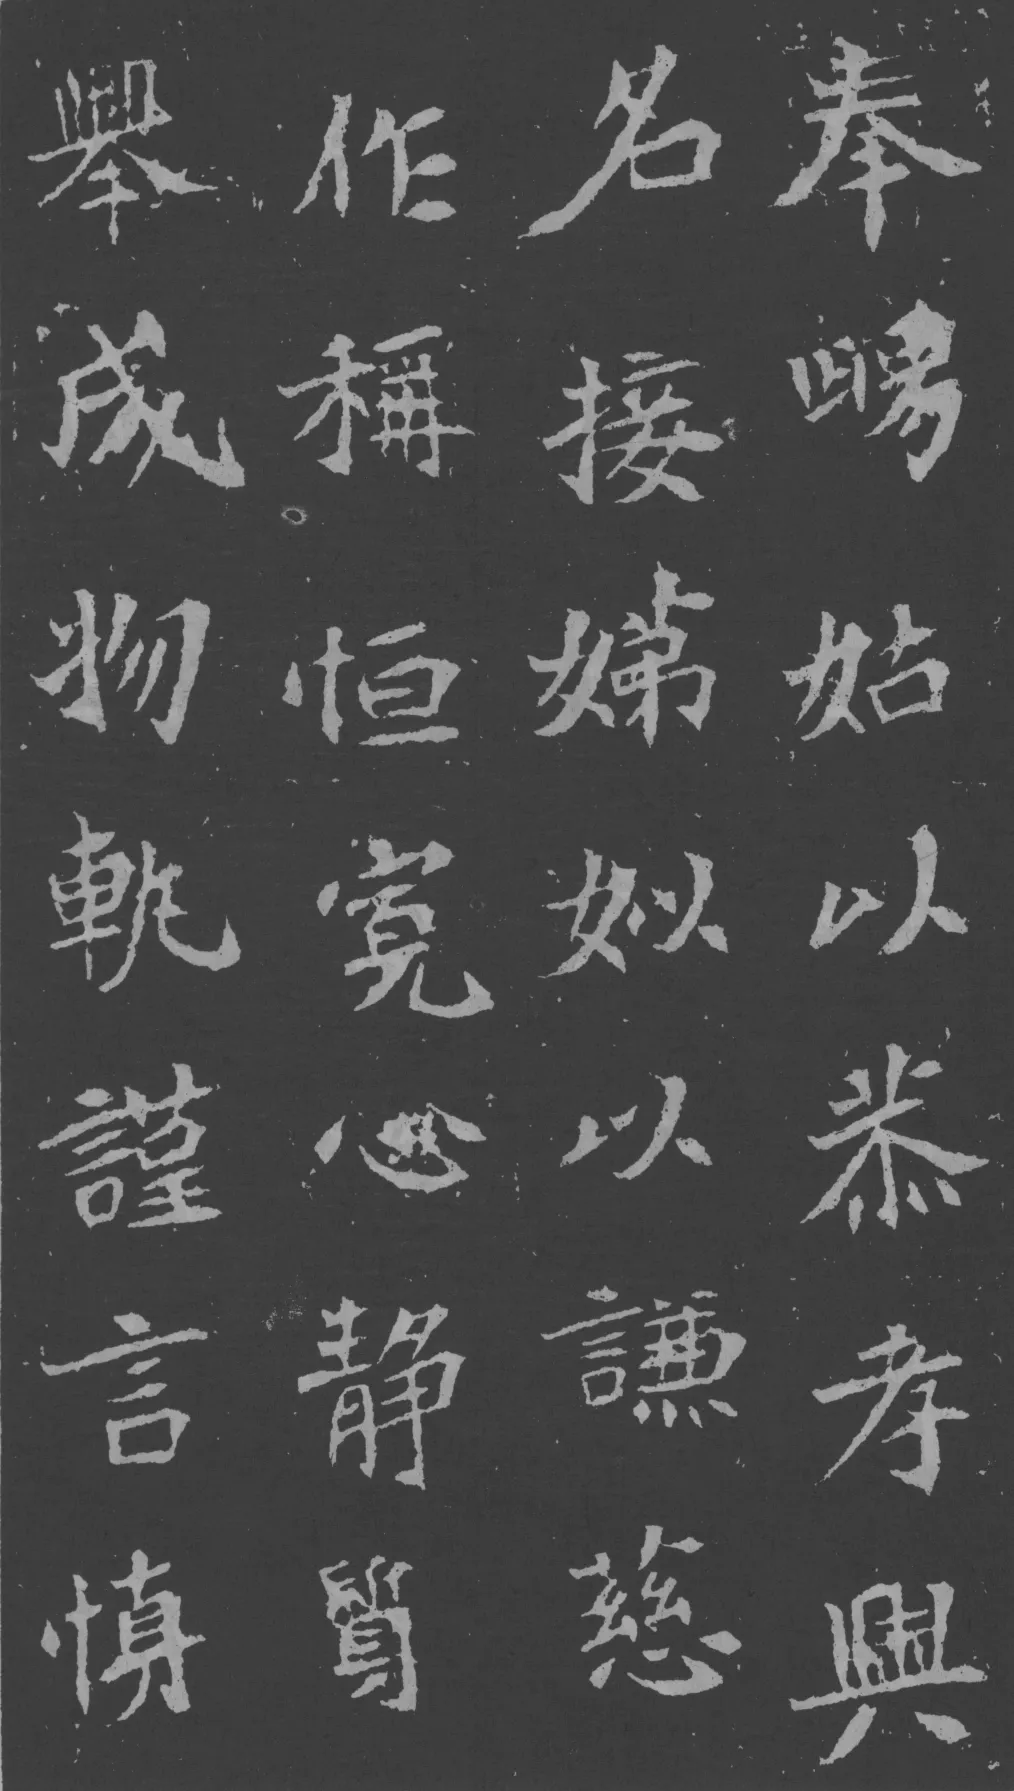 奉賜姑以恭孝興
名接娣姒以謙慈
作稱恒寛心静質
舉成物軌謹言慎